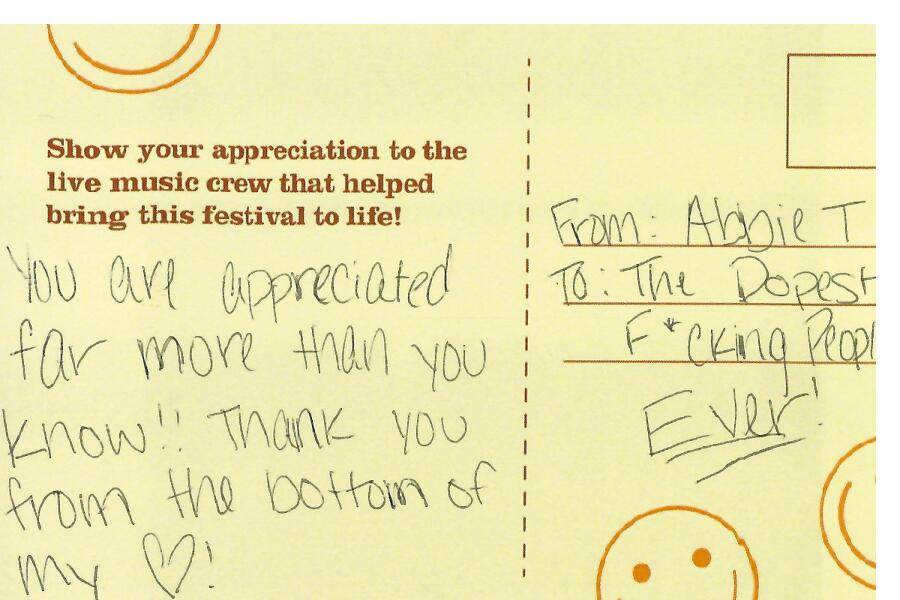 Show your appreciation to the
live music crew that helped
bring this festival to life!
You are appreciated
far more than you
know!! Thank you
from the bottom of
my ♡!
From: Abbie T
To: The Dopest
F*cking Peopl
Ever!